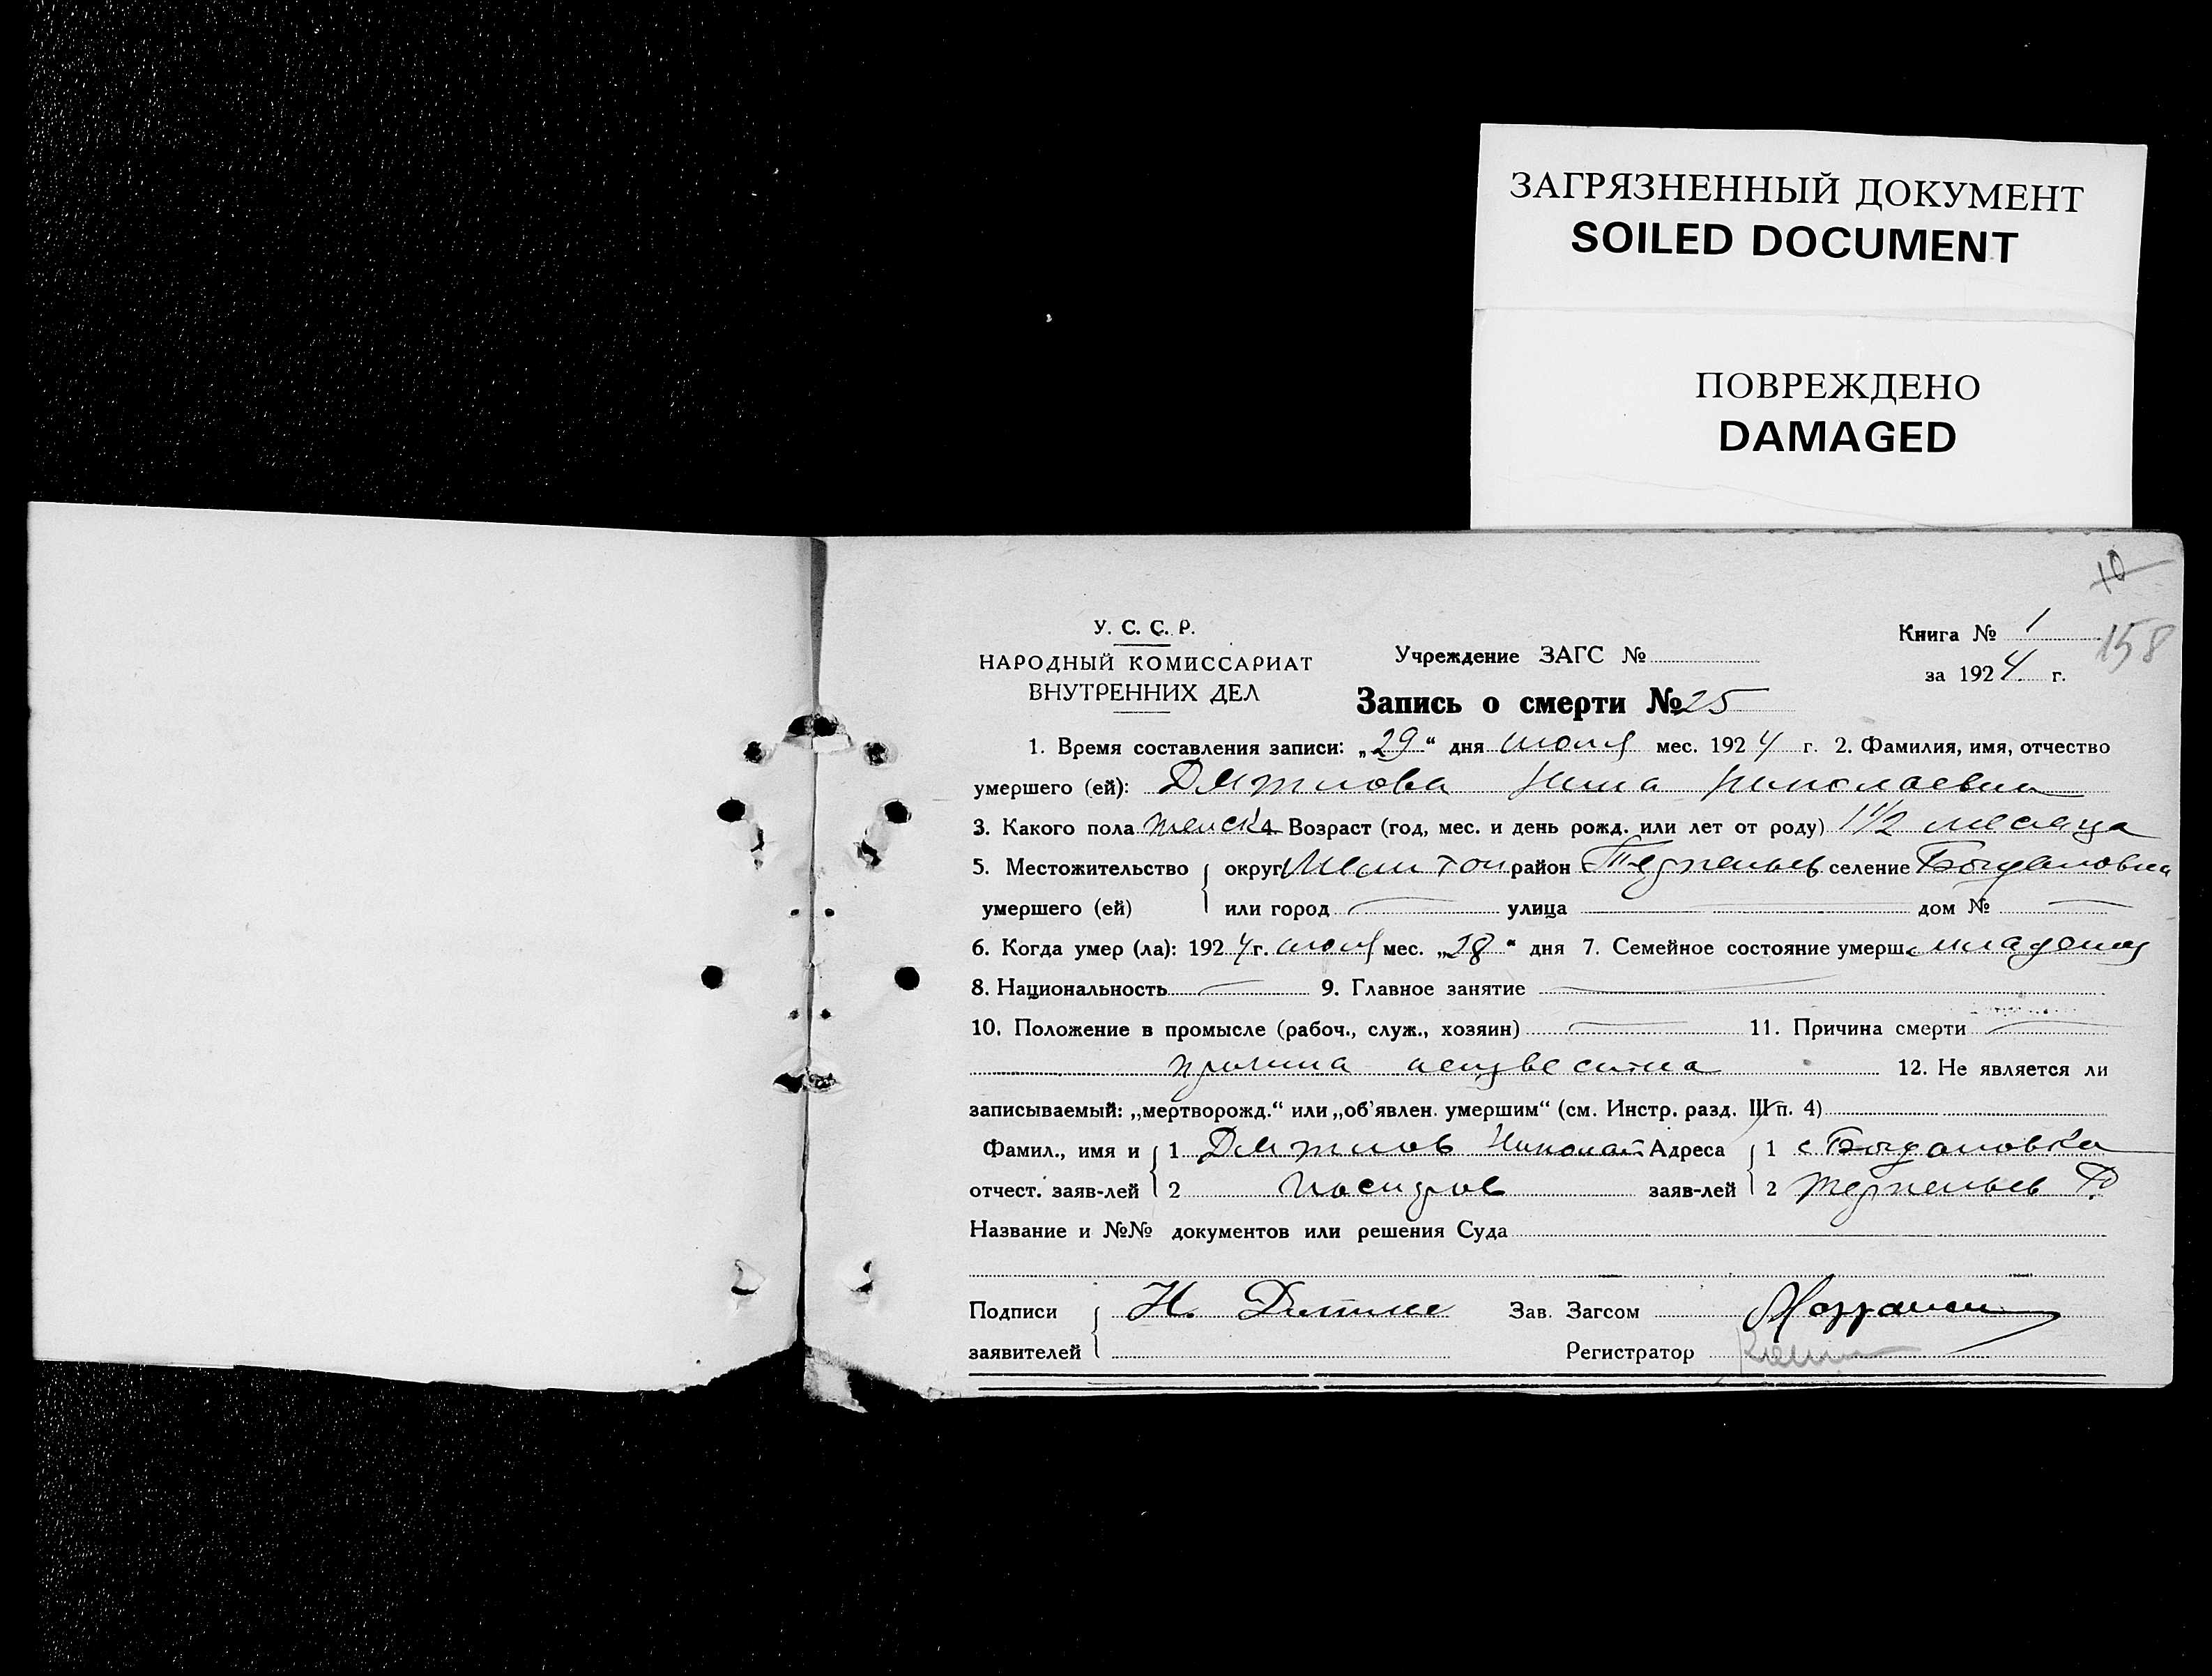 ЗАГРЯЗНЕННЫЙ ДОКУМЕНТ
SOILED DOCUMENT
ПОВРЕЖДЕНО
DAMAGED
10
158
У. С. С. Р.
НАРОДНЫЙ КОМИССАРИАТ
ВНУТРЕННИХ ДЕЛ
Учреждение ЗАГС №
Книга № 1
за 1924 г.
Запись о смерти № 25
1. Время составления записи: „29“ дня июля мес. 1924 г. 2. Фамилия, имя, отчество
умершего (ей): Дятлова Нина Николаевна
3. Какого пола женск 4. Возраст (год, мес. и день рожд. или лет от роду) 1 1/2 месяца
5. Местожительство округ район Терпеньев селение Богдановка
умершего (ей) или город — улица — дом № —
6. Когда умер (ла): 1924 г. июля мес. „28“ дня 7. Семейное состояние умерш. младенец
8. Национальность — 9. Главное занятие —
10. Положение в промысле (рабоч., служ., хозяин) — 11. Причина смерти —
причина неизвестна 12. Не является ли
записываемый: „мертворожд.“ или „об'явлен. умершим“ (см. Инстр. разд. III п. 4)
Фамил., имя и 1 Дятлов Николай Адреса 1 с Богдановка
отчест. заяв-лей 2 заяв-лей 2 Терпеньев Р.
Название и №№ документов или решения Суда
Подписи Н. Зав. Загсом
заявителей Регистратор